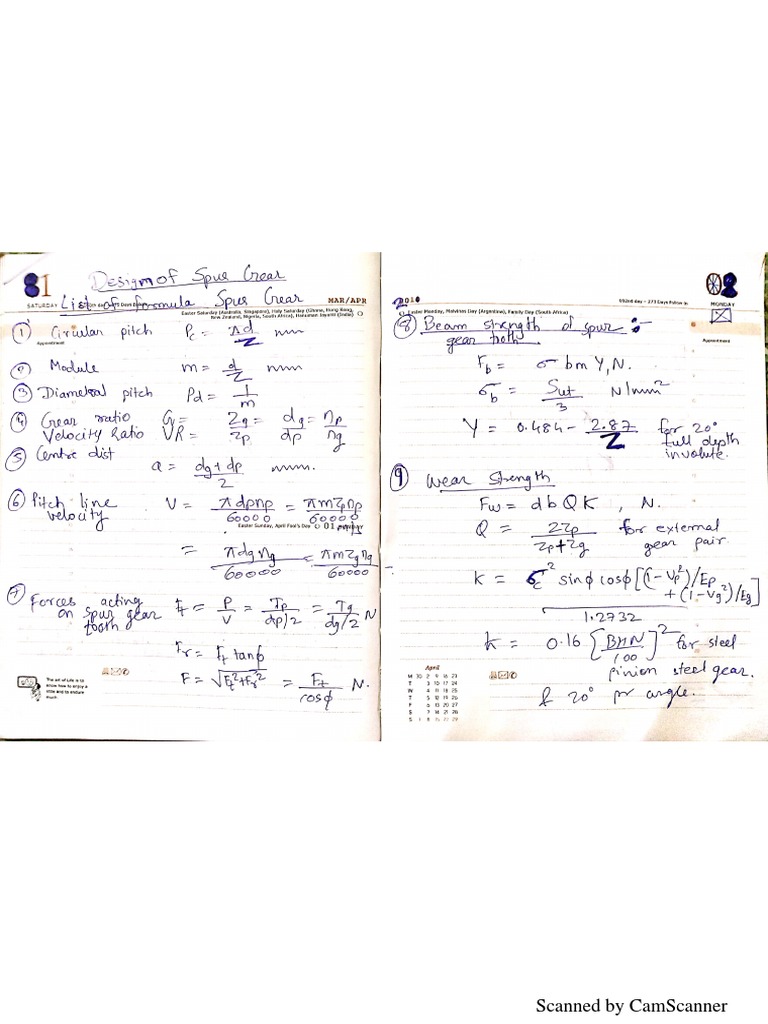 31
SATURDAY
Design of Spur Gear
List of formula Spur Gear
MAR/APR
Easter Saturday (Australia, Singapore), Holy Saturday (Ghana, Hong Kong,
New Zealand, Nigeria, South Africa), Hanuman Jayanti (India)
① Circular pitch Pc = πd/Z mm
Appointment
② Module m = d/Z mm
③ Diametral pitch Pd = 1/m
④ Gear ratio G = Zg/Zp = dg/dp = np/ng
Velocity Ratio VR =
⑤ Centre dist
a = (dg + dp)/2 mm.
⑥ Pitch line velocity V = πdpnp/60000 = πmZpnp/60000
Easter Sunday, April Fool's Day 01
= πdgng/60000 = πmZgng/60000
⑦ Forces acting on spur gear tooth Ft = P/V = Tp/(dp)/2 = Tg/dg/2 N
Fr = Ft tanϕ
F = √Ft²+Fr² = Ft/cosϕ N.
The art of Life is to
know how to enjoy a
little and to endure
much.
2018
092nd day - 273 Days Follow
02
MONDAY
Easter Monday, Malvinas Day (Argentina), Family Day (South Africa)
Appointment
⑧ Beam strength of spur gear tooth :-
Fb = σ b m Y, N.
σb = Sut/3 N/mm²
Y = 0.484 - 2.87/Z for 20° full depth involute.
⑨ Wear Strength
Fw = d b Q K , N.
Q = 2Zp/Zp+Zg for external gear pair.
K = σc² sinϕ cosϕ [(1-Vp²)/Ep + (1-Vg²)/Eg]
1.2732
K = 0.16 [BHN/100]² for steel
pinion steel gear.
& 20° pr angle.
April
M 30 2 9 16 23
T 3 10 17 24
W 4 11 18 25
T 5 12 19 26
F 6 13 20 27
S 7 14 21 28
S 1 8 15 22 29
Scanned by CamScanner